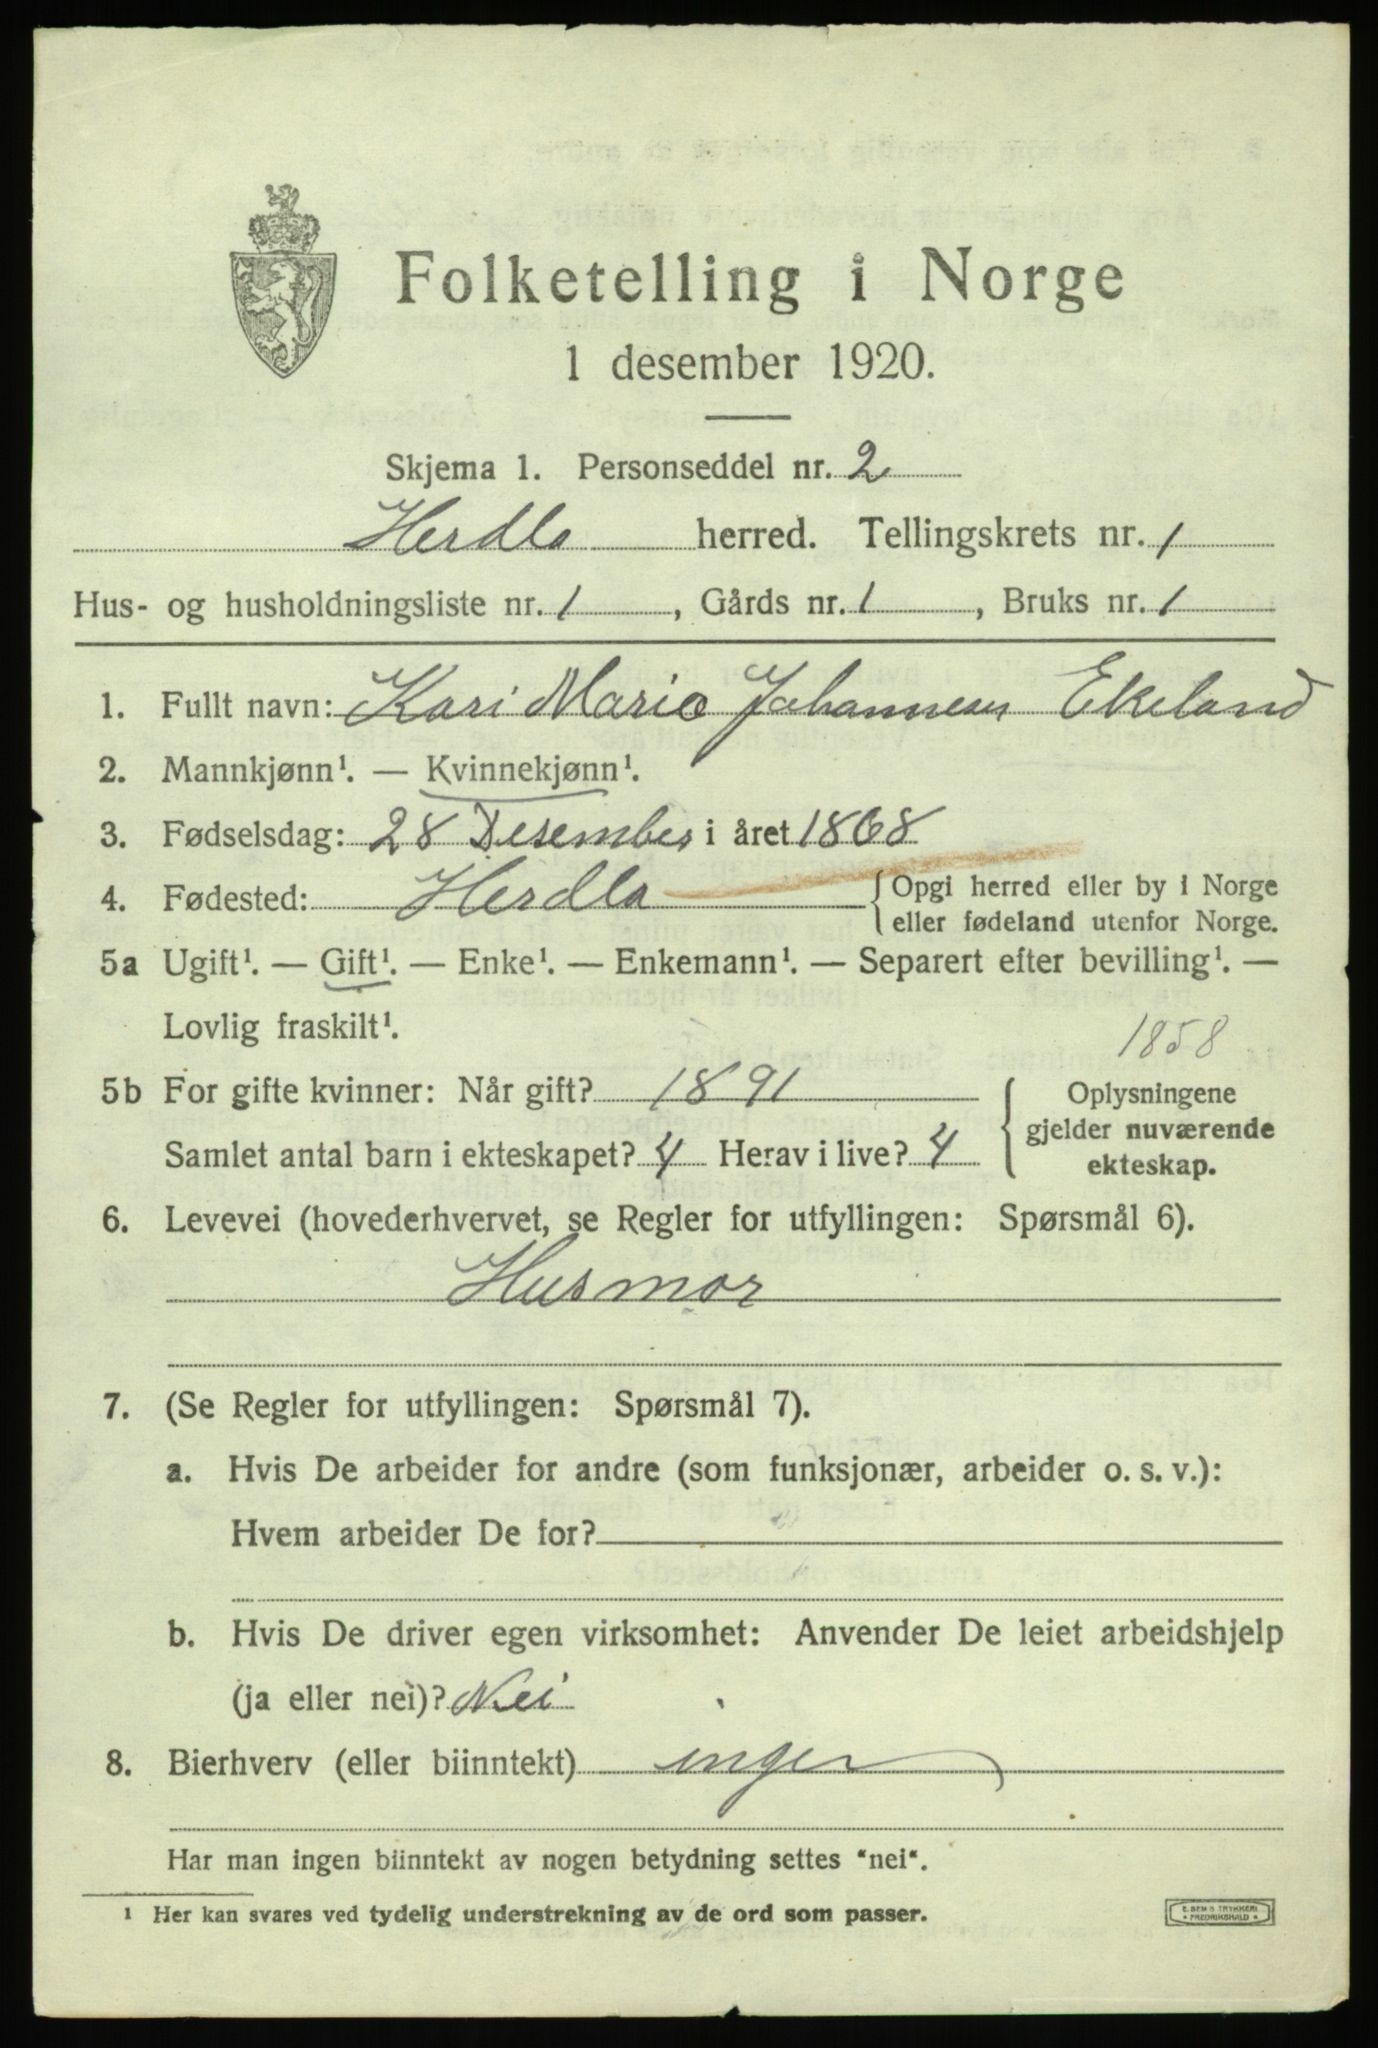 Folketelling i Norge
1 desember 1920.
Skjema 1. Personseddel nr. 2
Herdla herred. Tellingskrets nr. 1
Hus- og husholdningsliste nr. 1, Gårds nr. 1, Bruks nr. 1
1. Fullt navn: Kari Marie Johannesen Ekeland
2. Mannkjønn¹. — Kvinnekjønn¹.
3. Fødselsdag: 28 Desember i året 1868
4. Fødested: Herdla {Opgi herred eller by i Norge
eller fødeland utenfor Norge.
5a Ugift¹. — Gift¹. — Enke¹. — Enkemann¹. — Separert efter bevilling¹. —
Lovlig fraskilt¹.
1858
5b For gifte kvinner: Når gift? 1891
Samlet antal barn i ekteskapet? 4 Herav i live? 4
Oplysningene
gjelder nuværende
ekteskap.
6. Levevei (hovederhvervet, se Regler for utfyllingen: Spørsmål 6).
Husmor
7. (Se Regler for utfyllingen: Spørsmål 7).
a. Hvis De arbeider for andre (som funksjonær, arbeider o. s. v.):
Hvem arbeider De for?
b. Hvis De driver egen virksomhet: Anvender De leiet arbeidshjelp
(ja eller nei)? Nei
8. Bierhverv (eller biinntekt) ingen
Har man ingen biinntekt av nogen betydning settes "nei".
¹ Her kan svares ved tydelig understrekning av de ord som passer.
E. SEM'S TRYKKERI
FREDRIKSHALD